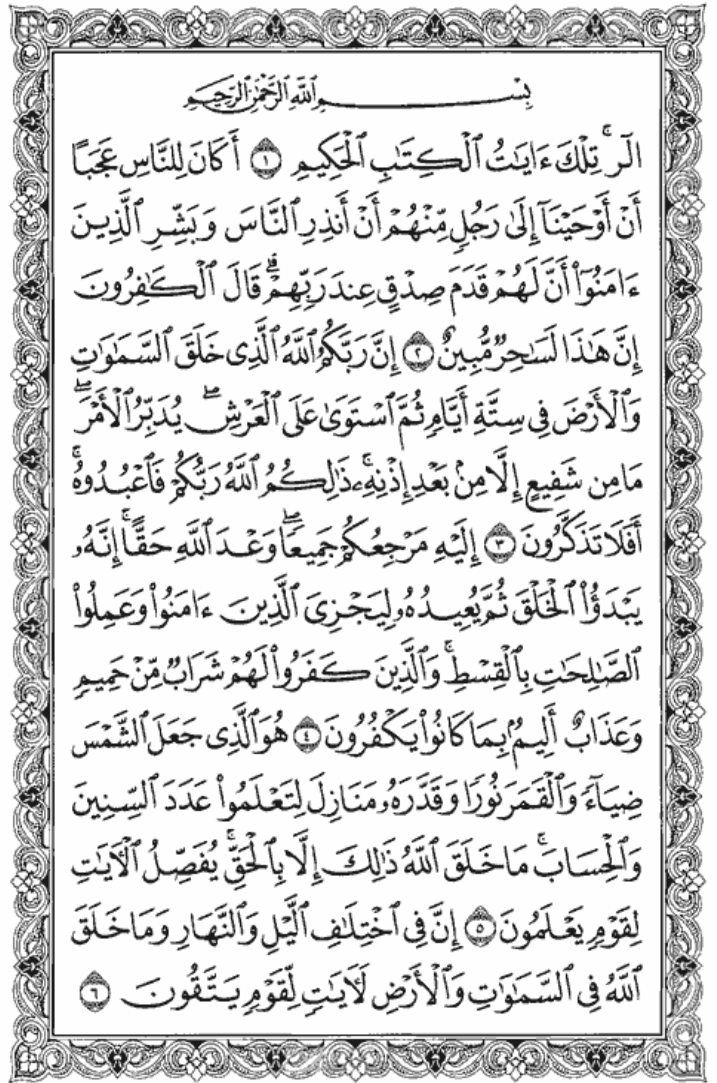 بِسْمِ ٱللَّهِ ٱلرَّحْمَٰنِ ٱلرَّحِيمِ
الٓرۚ تِلْكَ ءَايَٰتُ ٱلْكِتَٰبِ ٱلْحَكِيمِ ١ أَكَانَ لِلنَّاسِ عَجَبًا
أَنْ أَوْحَيْنَآ إِلَىٰ رَجُلٍ مِّنْهُمْ أَنْ أَنذِرِ ٱلنَّاسَ وَبَشِّرِ ٱلَّذِينَ
ءَامَنُوٓا۟ أَنَّ لَهُمْ قَدَمَ صِدْقٍ عِندَ رَبِّهِمْۗ قَالَ ٱلْكَٰفِرُونَ
إِنَّ هَٰذَا لَسَٰحِرٌ مُّبِينٌ ٢ إِنَّ رَبَّكُمُ ٱللَّهُ ٱلَّذِى خَلَقَ ٱلسَّمَٰوَٰتِ
وَٱلْأَرْضَ فِى سِتَّةِ أَيَّامٍ ثُمَّ ٱسْتَوَىٰ عَلَى ٱلْعَرْشِۖ يُدَبِّرُ ٱلْأَمْرَۖ
مَا مِن شَفِيعٍ إِلَّا مِنۢ بَعْدِ إِذْنِهِۦۚ ذَٰلِكُمُ ٱللَّهُ رَبُّكُمْ فَٱعْبُدُوهُۚ
أَفَلَا تَذَكَّرُونَ ٣ إِلَيْهِ مَرْجِعُكُمْ جَمِيعًاۖ وَعْدَ ٱللَّهِ حَقًّاۚ إِنَّهُۥ
يَبْدَؤُا۟ ٱلْخَلْقَ ثُمَّ يُعِيدُهُۥ لِيَجْزِىَ ٱلَّذِينَ ءَامَنُوا۟ وَعَمِلُوا۟
ٱلصَّٰلِحَٰتِ بِٱلْقِسْطِۚ وَٱلَّذِينَ كَفَرُوا۟ لَهُمْ شَرَابٌ مِّنْ حَمِيمٍ
وَعَذَابٌ أَلِيمٌۢ بِمَا كَانُوا۟ يَكْفُرُونَ ٤ هُوَ ٱلَّذِى جَعَلَ ٱلشَّمْسَ
ضِيَآءً وَٱلْقَمَرَ نُورًا وَقَدَّرَهُۥ مَنَازِلَ لِتَعْلَمُوا۟ عَدَدَ ٱلسِّنِينَ
وَٱلْحِسَابَۚ مَا خَلَقَ ٱللَّهُ ذَٰلِكَ إِلَّا بِٱلْحَقِّۚ يُفَصِّلُ ٱلْءَايَٰتِ
لِقَوْمٍ يَعْلَمُونَ ٥ إِنَّ فِى ٱخْتِلَٰفِ ٱلَّيْلِ وَٱلنَّهَارِ وَمَا خَلَقَ
ٱللَّهُ فِى ٱلسَّمَٰوَٰتِ وَٱلْأَرْضِ لَءَايَٰتٍ لِّقَوْمٍ يَتَّقُونَ ٦